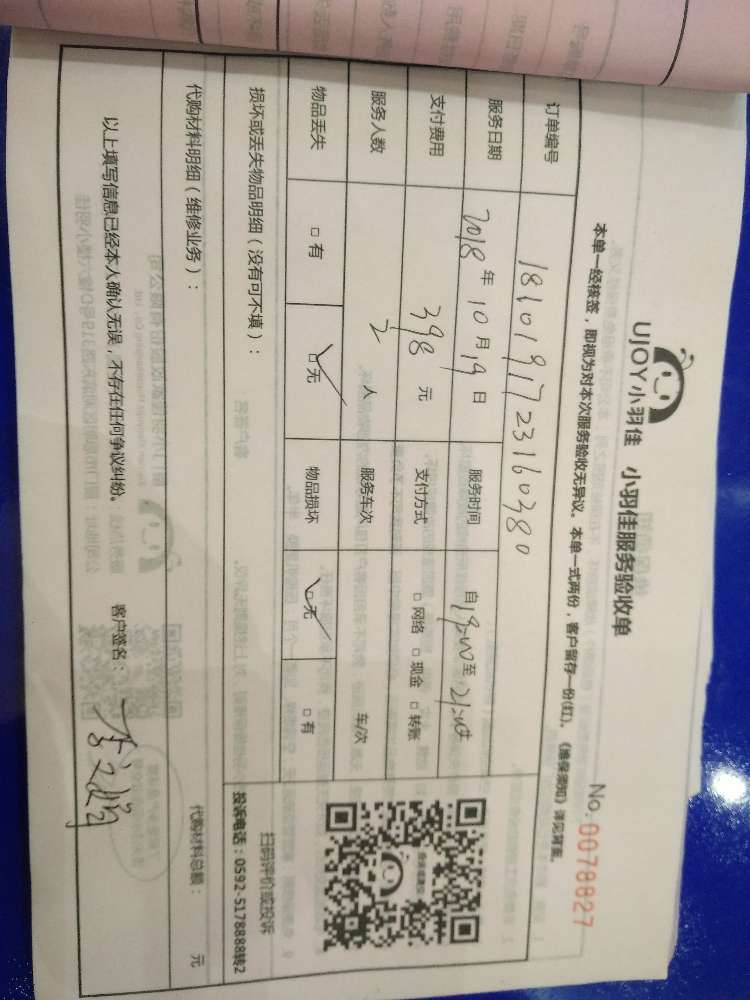 UJOY小羽佳 小羽佳服务验收单
No. 0078827
本单一经核签，即视为对本次服务验收无异议。本单一式两份，客户留存一份(红)。《维保须知》详见背面。
订单编号 1810191723160380
服务日期 2018年10月19日 服务时间 自19:00至21:00止
支付费用 398元 支付方式 □网络 □现金 □转账
服务人数 2人 服务车次 车/次
物品丢失 □有 □无 物品损坏 □无 □有
损坏或丢失物品明细（没有可不填）：
扫码评价或投诉
投诉电话：0592-5178888转2
代购材料明细（维修业务）： 代购材料总额： 元
以上填写信息已经本人确认无误，不存在任何争议纠纷。 客户签名：